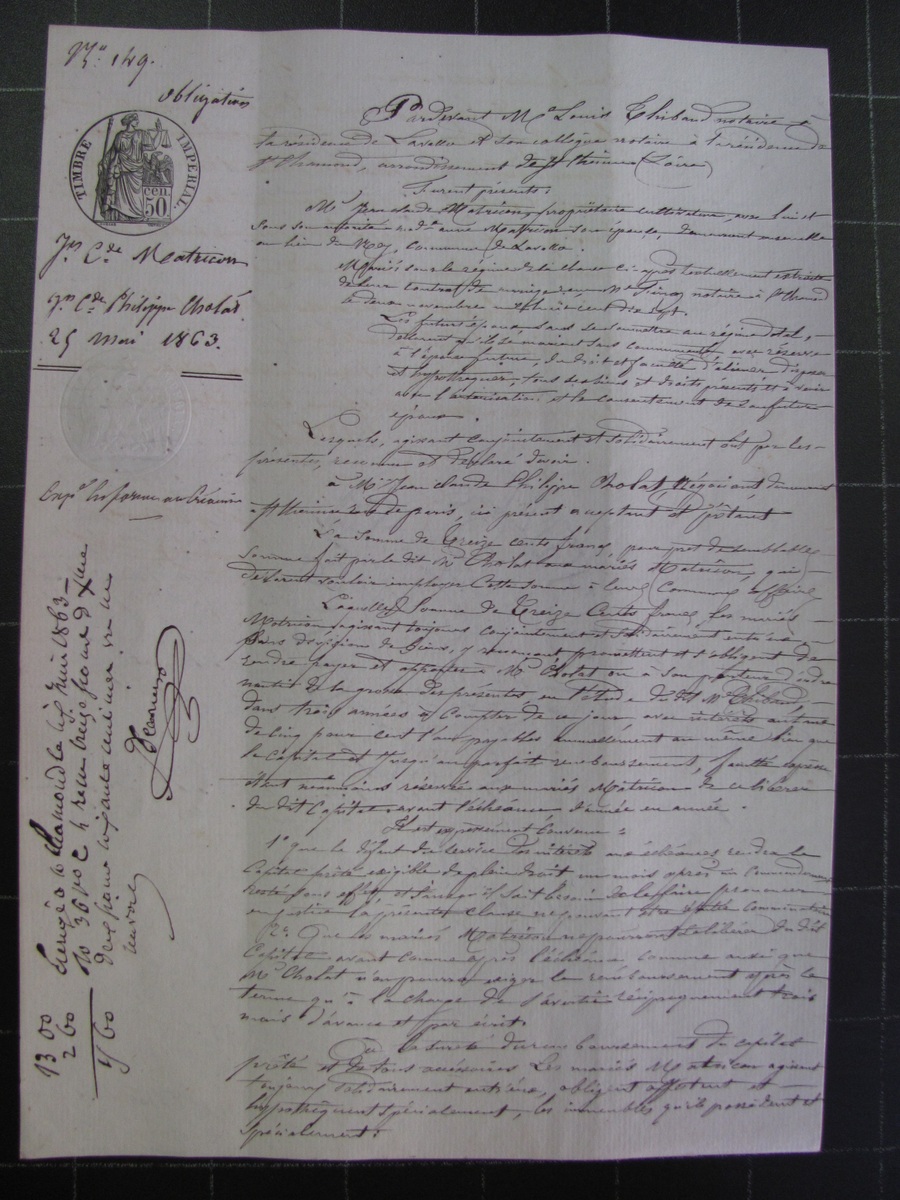 N° 149.
Obligation
TIMBRE IMPÉRIAL
50 cen
Jn Cde Matricon
Jn Cde Philippe Cholat
25 mai 1863.
Par devant Me Louis Thibaud notaire à
la résidence de Lavalla et son collègue notaire à la résidence de
St Chamond, arrondissement de St Etienne (Loire)
Furent présents :
Mr Jean claude Matricon, propriétaire cultivateur, avec lui et
sous son autorité Anne Matricon son épouse, demeurant ensemble
au lieu du commune de Lavalla.
Mariés sous le régime de la clause ci-après textuellement extraite
de leur contrat de mariage reçu Me notaire à St Chamond
le douze novembre mil huit cent dix sept.
Les futurs époux sans se soumettre au régime dotal,
déclarent qu'ils se marient sans communauté, avec réserve
à l'épouse future, du droit et faculté d'aliéner, disposer
et hypothéquer, tous ses biens et droits présents et à venir
avec l'autorisation et le consentement de son futur
époux
Lesquels, agissant conjointement et solidairement ont par les
présentes, reconnu et déclaré devoir.
à Mr Jean claude Philippe Cholat Négociant demeurant
à St Etienne rue de Paris, ici présent acceptant et prêtant
La Somme de Treize cents francs, pour prêt de semblable
somme fait par le dit Mr Cholat aux mariés Matricon, qui
déclarent vouloir employer cette somme à leurs communes affaires
Laquelle Somme de Treize Cents francs, les mariés
Matricon agissant toujours conjointement et solidairement entr'eux
sans division de biens, y renonçant promettent et s'obligent de
rendre payer et apporter à Mr Cholat ou à son porteur d'ordre
nantit de la grosse des présentes en l'étude du dit Me Thibaud,
dans trois années à Compter de ce jour, avec intérêts au taux
de cinq pour cent l'an payables annuellement au même lieu que
le Capital et jusqu'au parfait remboursement, faculté expresse
étant néanmoins réservée aux mariés Matricon de se libérer
du dit Capital avant l'échéance d'année en année.
Il est expressément Convenu :
1° que le défaut du service des intérêts aux échéances rendra le
Capital prêté exigible de plein droit un mois après un Commandement
resté sans effet et sans qu'il soit besoin de le faire prononcer
en justice la présente clause ne pouvant être comminatoire
2° Que les mariés Matricon ne pourront se libérer du dit
Capital avant comme après l'échéance comme aussi que
Mr Cholat n'en pourra exiger le remboursement après le
terme qu'à la charge de s'avertir réciproquement trois
mois d'avance et par écrit.
À la sureté du remboursement du capital
prêté et de tous accessoires Les mariés Matricon agissant
toujours solidairement entr'eux, obligent affectent et
hypothèquent spécialement, les immeubles qu'ils possèdent et
spécialement :
Enregé à St Chamond le juin 1863
treize francs
deux francs soixante centimes
1300
260
1560